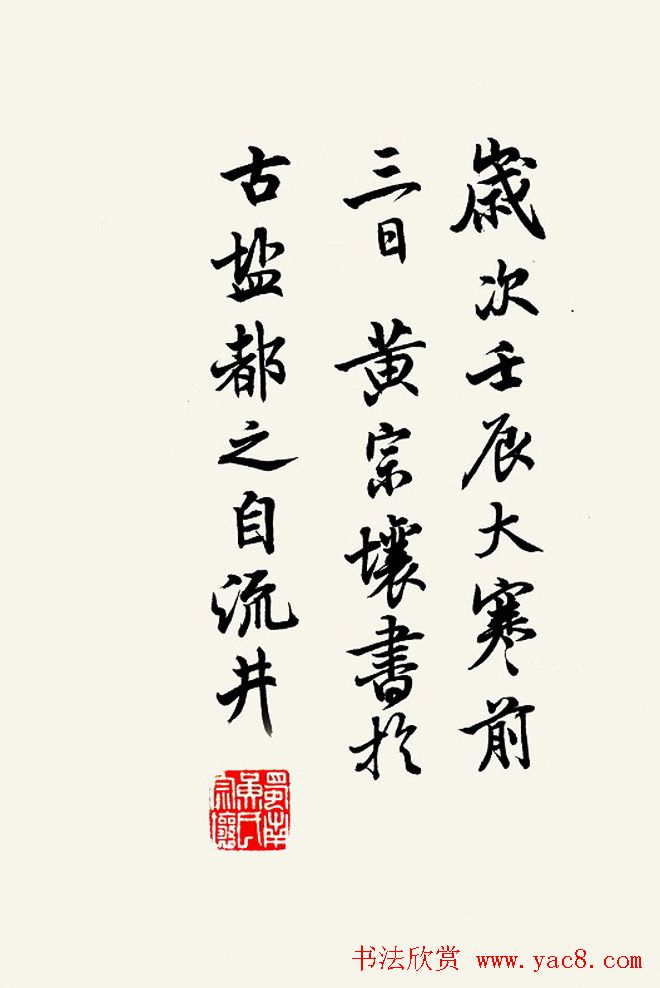 歲次壬辰大寒前
三日 黄宗壤書於
古盐都之自流井
蜀南
黄氏
宗壤
书法欣赏 www.yac8.com